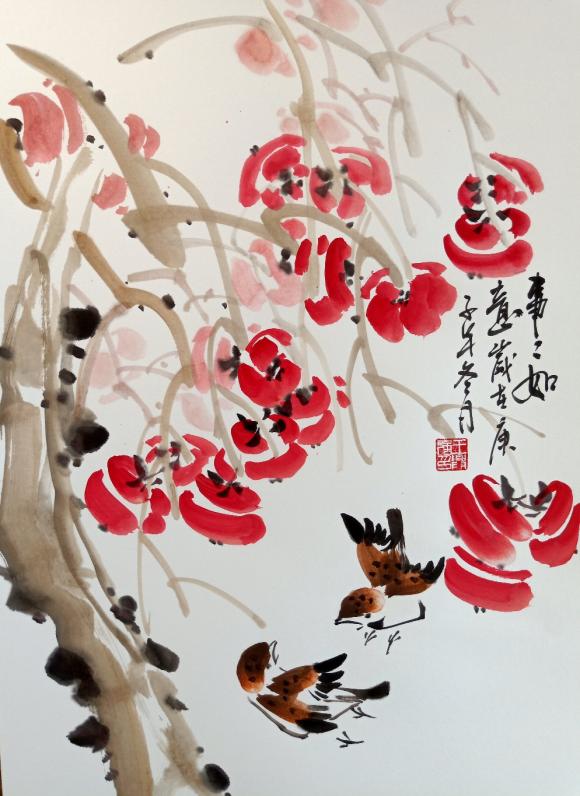 事々如
意歲在庚
子年冬月